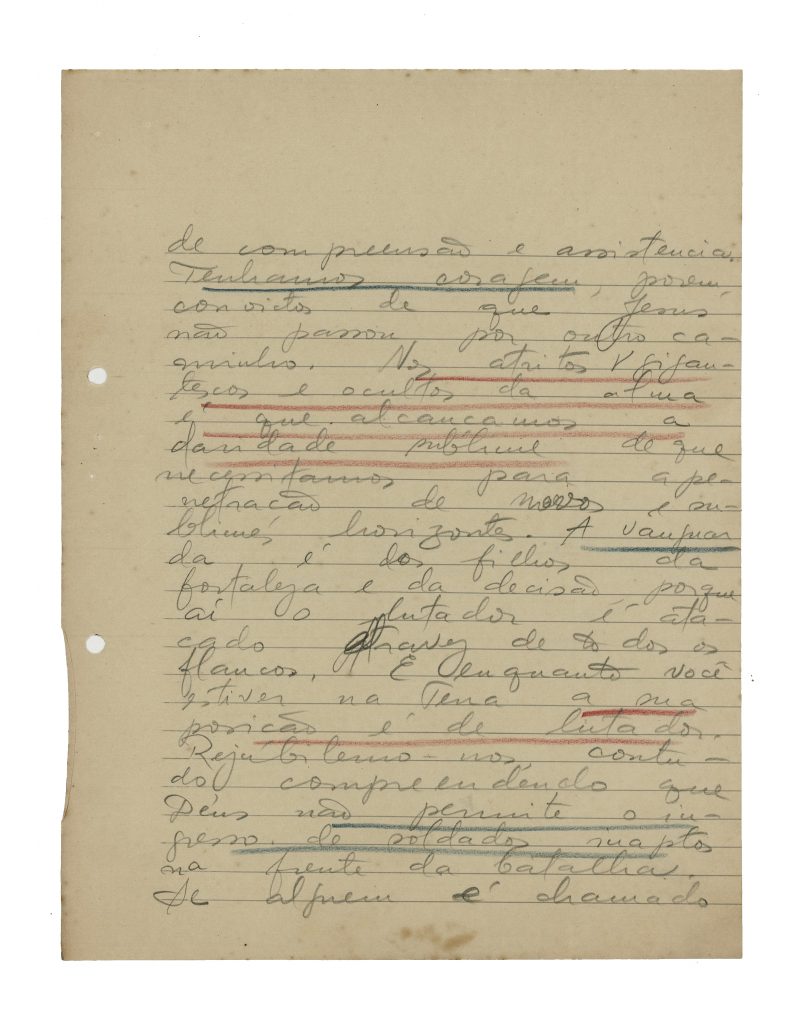 de compreensão e assistencia.
Tenhamos coragem, porem,
convictos de que Jesus
não passou por outro ca-
minho. Nos atritos gigan-
tescos e ocultos da alma
é que alcançamos a
claridade sublime de que
necessitamos para a pe-
netração de novos e su-
blimes horizontes. A vanguar
da é dos filhos da
fortaleza e da decisão, porque
aí o lutador é ata-
cado atravez de todos os
flancos. E enquanto você
estiver na Terra a sua
posição é de lutador.
Rejubilemo-nos, contu-
do compreendendo que
Deus não permite o in-
gresso de soldados inaptos
na frente da batalha.
Se alguem é chamado